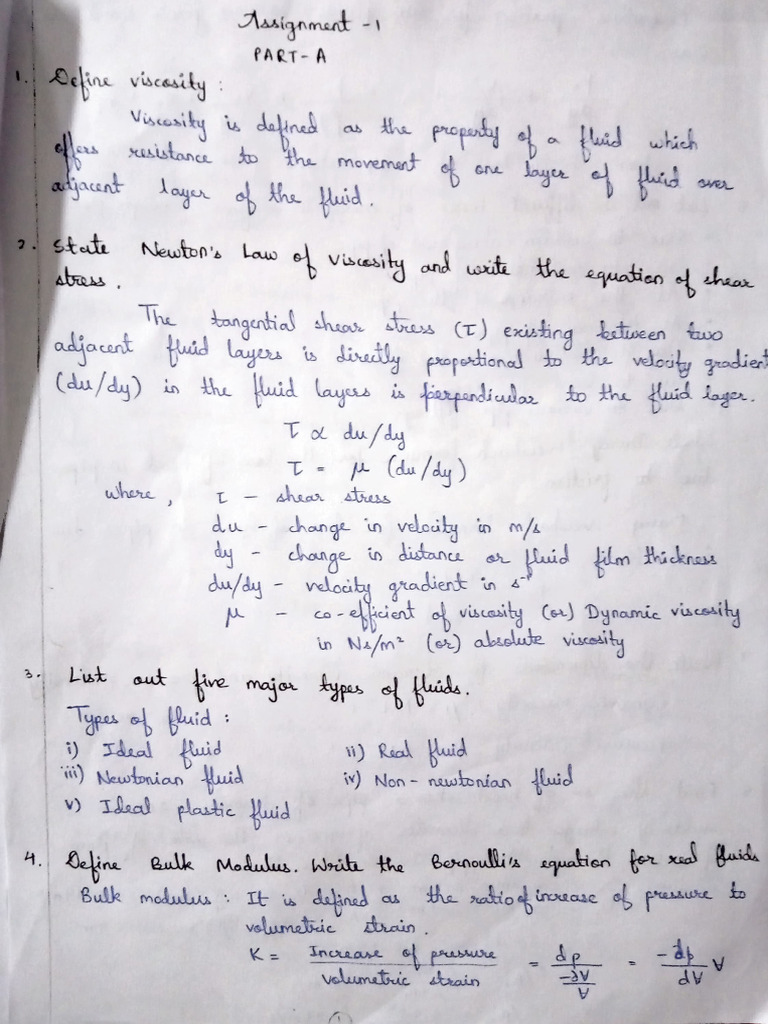 Assignment - 1
PART - A
1. Define viscosity :
Viscosity is defined as the property of a fluid which
offers resistance to the movement of one layer of fluid over
adjacent layer of the fluid.
2. State Newton's Law of Viscosity and write the equation of shear
stress.
The tangential shear stress (τ) existing between two
adjacent fluid layers is directly proportional to the velocity gradient
(du/dy) in the fluid layers is perpendicular to the fluid layer.
τ ∝ du/dy
τ = μ (du/dy)
where, τ - shear stress
du - change in velocity in m/s
dy - change in distance or fluid film thickness
du/dy - velocity gradient in s⁻¹
μ - co-efficient of viscosity (or) Dynamic viscosity
in Ns/m² (or) absolute viscosity
3. List out five major types of fluids.
Types of fluid :
i) Ideal fluid ii) Real fluid
iii) Newtonian fluid iv) Non-newtonian fluid
v) Ideal plastic fluid
4. Define Bulk Modulus. Write the Bernoulli's equation for real fluids
Bulk modulus : It is defined as the ratio of increase of pressure to
volumetric strain.
K = Increase of pressure / volumetric strain = dp / (-dV/V) = -dp/dV V
(1)